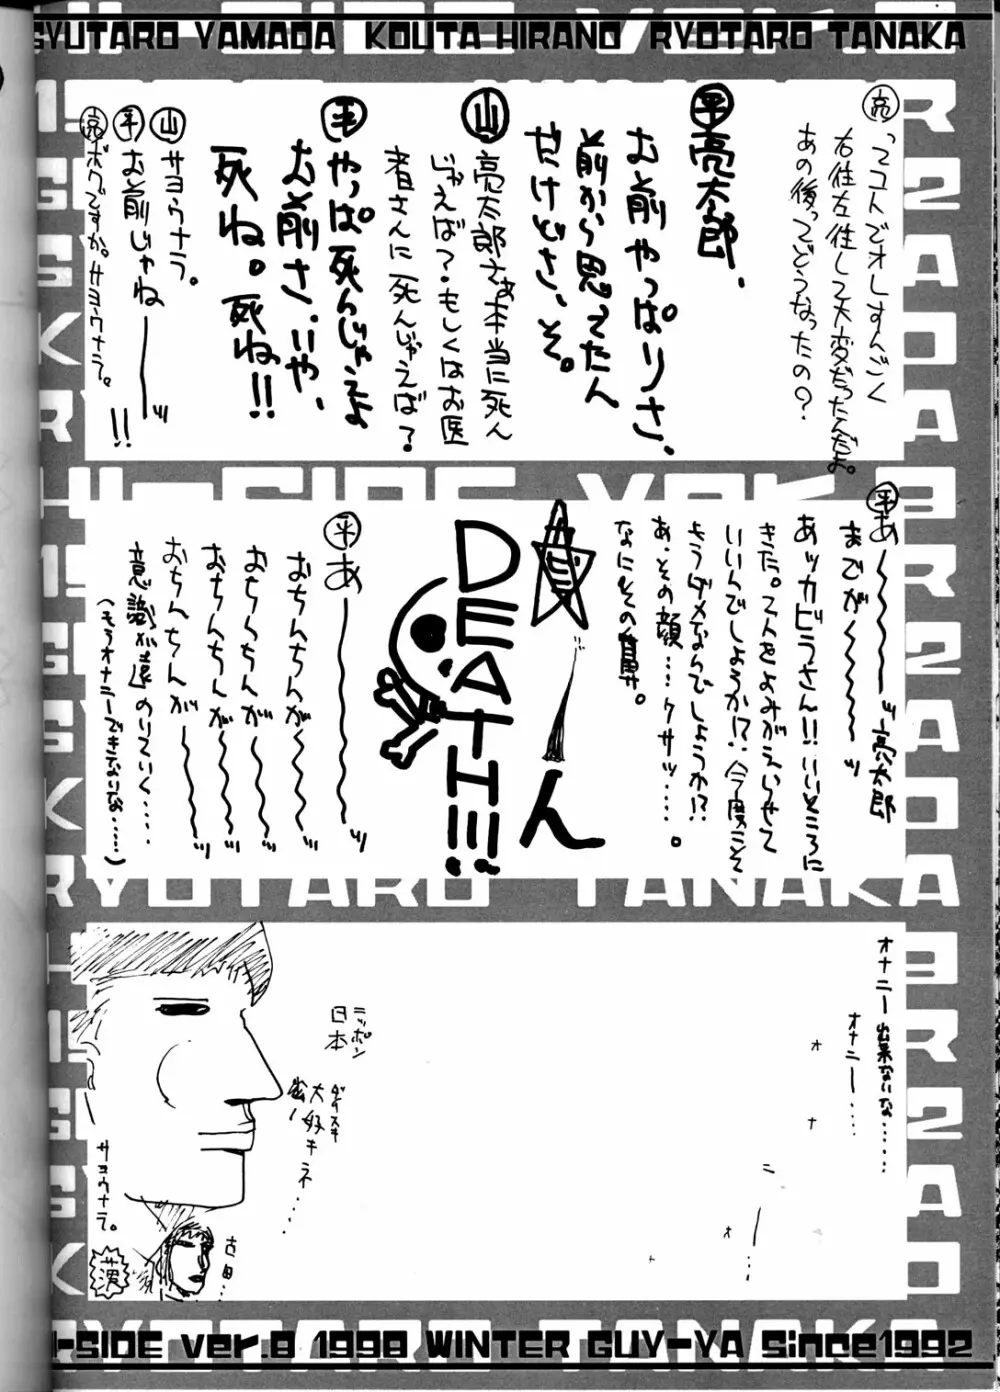 GYUTARO YAMADA KOUTA HIRANO RYOTARO TANAKA
亮 ってコトでオレすんごく
右往左往して大変だったんだよ。
あの後ってどうなったの？
平 亮太郎、
お前やっぱりさ、
前から思ってたん
だけどさ、そ。
山 亮太郎さぁ本当に死ん
じゃえば？もしくはお医
者さんに死んじゃえば？
平 やっぱ死んじゃえよ
お前さ、いや、
死ね。死ね!!
山 サヨウナラ。
平 お前じゃねーーッ!!
亮 ボクですか。サヨウナラ。
平 あ〜〜〜〜ッ亮太郎
までが〜〜〜〜ッ
あッカビラさん!!いいところに
きた。2人をよみがえらせて
いいんでしょうか!?今度こそ
もうダメなんでしょうか!?
あ、その顔…クサッ……。
なにその
ん
DEATH!!!
平 あ〜〜〜〜ッ
おちんちんが〜〜〜ッ
おちんちんが〜〜〜ッ
おちんちんが〜〜〜ッ
おちんちんが〜〜〜ッ
意識が遠のいていく……
（もうオナニーできないな……）
オナニー出来ないな……
オナニー……
オ
ナ
ニ
ー
オ
…
ニッポン
日本
ダイスキ
大好キネ…
サヨウナラ。
古田…
H-SIDE ver.8 1998 WINTER GUY-YA Since1992